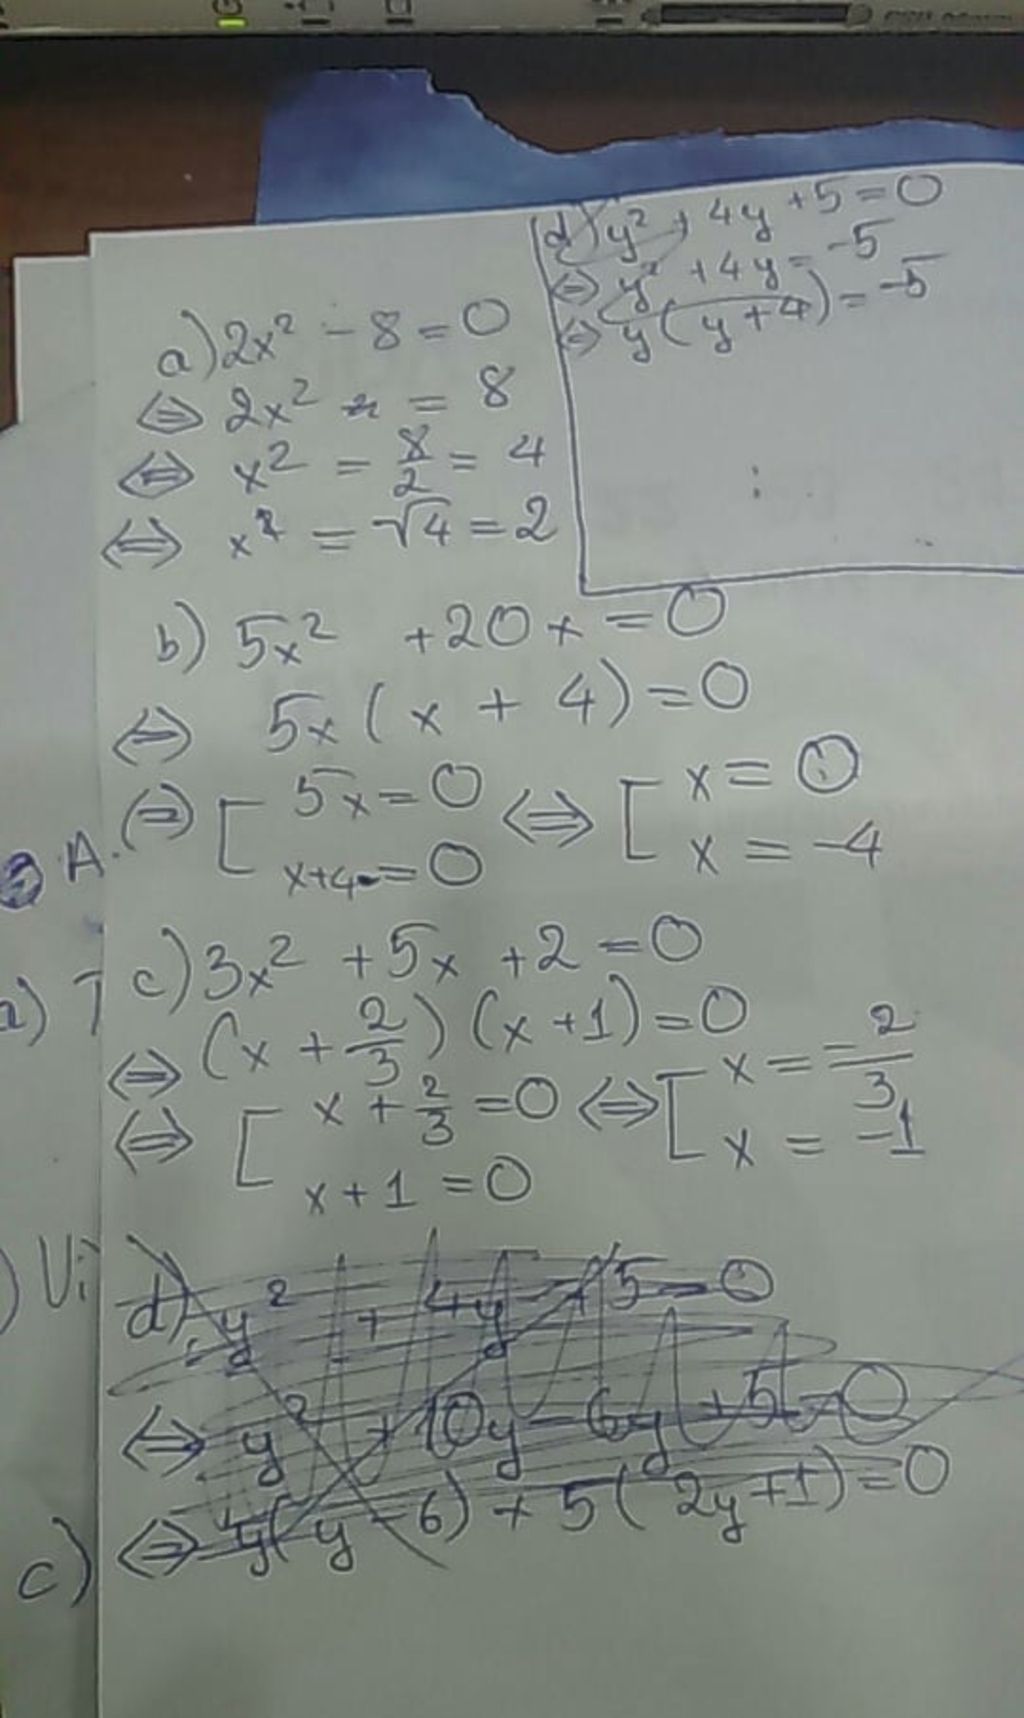 d) y² + 4y + 5 = 0
⇔ y² + 4y = -5
⇔ y(y + 4) = -5
a) 2x² - 8 = 0
⇔ 2x² = 8
⇔ x² = 8/2 = 4
⇔ x = √4 = 2
b) 5x² + 20x = 0
⇔ 5x(x + 4) = 0
⇔ [ 5x = 0 ⇔ [ x = 0
x + 4 = 0 x = -4
A.
c) 3x² + 5x + 2 = 0
a) T
⇔ (x + 2/3)(x + 1) = 0
⇔ [ x + 2/3 = 0 ⇔ [ x = -2/3
x + 1 = 0 x = -1
) Vi
d) y² + 4y + 5 = 0
⇔ y² + 10y - 6y + 5 = 0
⇔ y(y - 6) + 5(2y + 1) = 0
c)